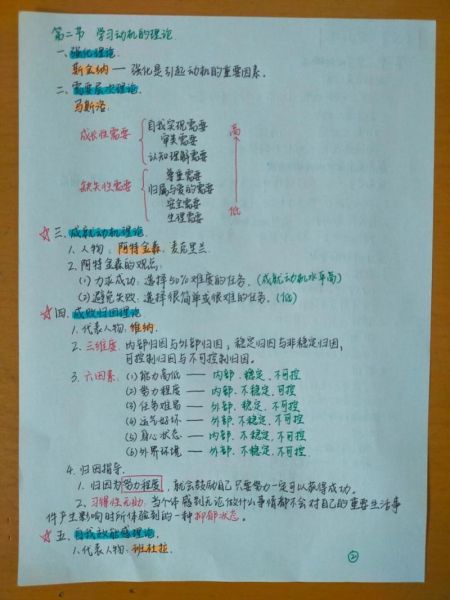 第二节 学习动机的理论
一、强化理论
斯金纳 — 强化是引起动机的重要因素。
二、需要层次理论
马斯洛
成长性需要
自我实现需要
审美需要
认知理解需要
缺失性需要
尊重需要
归属与爱的需要
安全需要
生理需要
高
低
☆三、成就动机理论
1. 人物：阿特金森、麦克里兰
2. 阿特金森的观点：
(1) 力求成功：选择50%难度的任务。(成就动机水平高)
(2) 避免失败：选择很简单或很难的任务。(低)
☆四、成败归因理论
1. 代表人物：维纳
2. 三维度：内部归因与外部归因，稳定归因与非稳定归因，
可控制归因与不可控制归因。
3. 六因素：(1) 能力高低 — 内部、稳定、不可控
(2) 努力程度 — 内部、不稳定、可控
(3) 任务难易 — 外部、稳定、不可控
(4) 运气好坏 — 外部、不稳定、不可控
(5) 身心状态 — 内部、不稳定、不可控
(6) 外界环境 — 外部、不稳定、不可控
4. 归因指导。
1. 归因为努力程度，就会鼓励自己只要努力一定可以获得成功。
2. 习得性无助：当个体感到无论做什么事情都不会对自己的重要生活事
件产生影响时所体验到的一种抑郁状态。
☆五、自我效能感理论
1. 代表人物：班杜拉
②